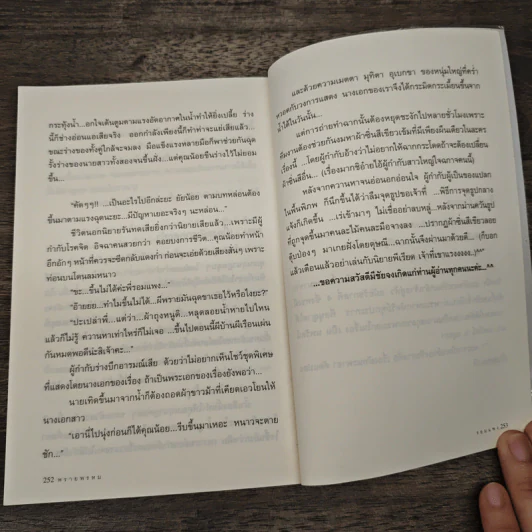 กระทุ้งน้ำ...อกใจเต้นตูมตามแรงอัดอากาศในน้ำทำให้ยิ่งเปลี้ย ร่าง
นี้ก็ช่างอ่อนแอเสียจริง ออกกำลังเพียงนี้ก็ทำท่าจะแย่เสียแล้ว...
ขณะร่างของทั้งคู่ใกล้จะจมลง มือแข็งแรงหลายมือก็พาช่วยกันฉุด
รั้งร่างของนายสาวทั้งสองจนขึ้นฝั่ง...แต่คุณน้อยขืนร่างไว้ไม่ยอม
ขึ้น...
"คัตๆๆ!! ...เป็นอะไรไปอีกล่ะยะ อัยน้อย ตามบทหล่อนต้อง
ขึ้นมาตามแรงฉุดนะยะ...มีปัญหาเยอะจริงๆ นะหล่อน..."
ชีวิตนอกนิยายรันทดเสียยิ่งกว่านิยายเสียแล้ว...เพราะมีผู้
กำกับโรคจิต อิจฉาคนสวยกว่า คอยบงการชีวิต...คุณน้อยทำหน้า
อีกอักๆ หน้าที่ควรจะซีดกลับแดงก่ำ ก่อนจะเอ่ยด้วยเสียงสั่นๆ เพราะ
ท่อนบนโดนลมหนาว
"ขะ...ขึ้นไม่ได้ค่ะพี่รอมแพง..."
"อ๊ายยย...ทำไมขึ้นไม่ได้...มีพรายมันฉุดขาเธอไว้หรือไงยะ?"
"ปะเปล่าพี่...แต่ว่า...ผ้าถุงหนูดิ...หลุดลอยน้ำหายไปไหน
แล้วก็ไม่รู้ ควานหาเท่าไหร่ก็ไม่เจอ ...ขึ้นไปตอนนี้ผีบ้านผีเรือนเผ่น
กันหมดพอดีน่ะสิเจ้าคะ..."
ผู้กำกับร่างบึกอารมณ์เสีย ด้วยว่าไม่อยากเห็นโชว์ชุดพิเศษ
ที่แสดงโดยนางเอกของเรื่อง ถ้าเป็นพระเอกของเรื่องยังพอว่า...
นายเทิดขึ้นมาจากน้ำก็ต้องถอดผ้าขาวม้าที่เคียดเอวโยนให้
นางเอกสาว
"เอานี่ไปนุ่งก่อนก็ได้คุณน้อย...รีบขึ้นมาเหอะ หนาวจะตาย
ชัก..."
252 พรายพรหม
และด้วยความเมตตา มุทิตา อุเบกขา ของหนุ่มใหญ่ที่คร่ำ
หวอดกับวงการแสดง นางเอกของเราจึงได้กระมิดกระเมี้ยนขึ้นจาก
น้ำได้ในวันนั้น...
แต่การถ่ายทำฉากนั้นต้องหยุดชะงักไปหลายชั่วโมงเพราะ
ทีมงานต้องช่วยกันงมหาผ้าซิ่นสีเขียวเข้มที่มีเพียงผืนเดียวในละคร
เรื่องนี้ ...โดยผู้กำกับอ้างว่าไม่อยากให้ฉากกระโดดถ้าจะต้องเปลี่ยน
ผ้าซิ่นสีอื่น... (เรื่องมากชิอ๋ายไอ้ผู้กำกับสาวใหญ่ใจฉกาจคนนี้)
หลังจากความหาจนอ่อนอกอ่อนใจ ผู้กำกับผู้เป็นของแปลก
ในพื้นพิภพ ก็นึกขึ้นได้ว่าลืมจุดรูปขอเจ้าที่ ...พิธีการจุดรูปกลาง
แจ้งก็เกิดขึ้น ...เร่เข้ามาๆ ไม่เชื่ออย่าลบหลู่...หลังจากม่านควันรูป
ที่ถูกจุดขึ้นมาคนละไม้คนละมือจางลง ...ปรากฏผ้าซิ่นสีเขียวลอย
ตุ๊บป่องๆ มาเกยฝั่งโดยดุษณี...ฉากนั้นจึงผ่านมาด้วยดี... (กับสก
แล้วเดือนแล้วอย่าเล่นกับนิยายพีเรียด เจ้าที่เขาแรงงงงง...)^^
...ขอความสวัสดีมีชัยจงเกิดแก่ท่านผู้อ่านทุกคนนะคะ...^^
รอมแพง 253